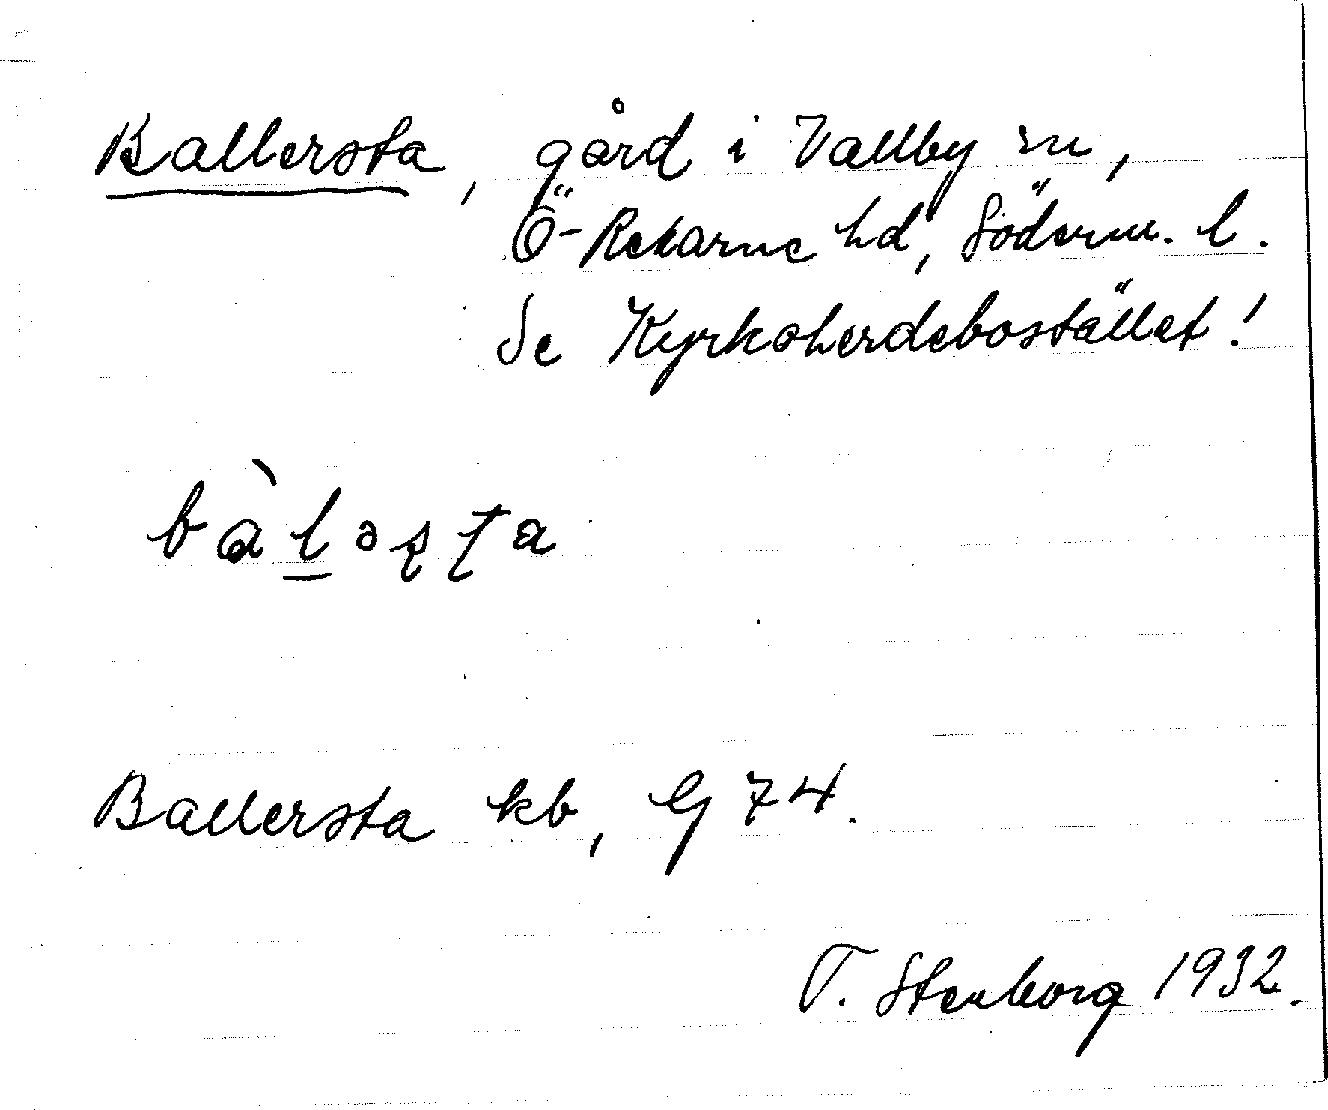 Ballersta, gård i Vallby sn,
Ö-Rekarne hd, Söderm. l.
Se Kyrkoherdebostället!
bàl̲əʂʈa
Ballersta kb, G 74.
T. Stenborg 1932.